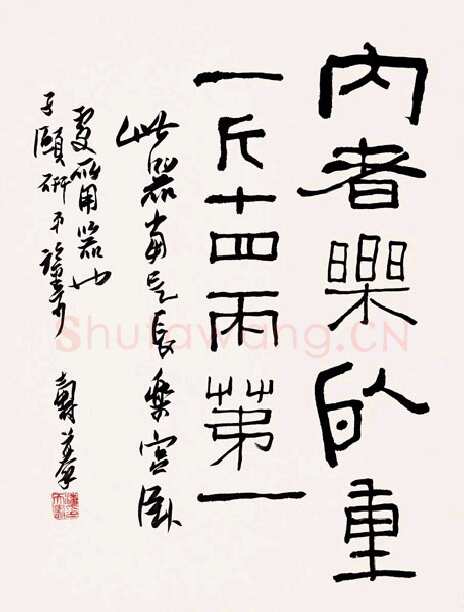 内者樂臥重
一斤十四兩第一
此器當是長樂宮臥
處所用器也
子頤研
壽
Shufawang.CN